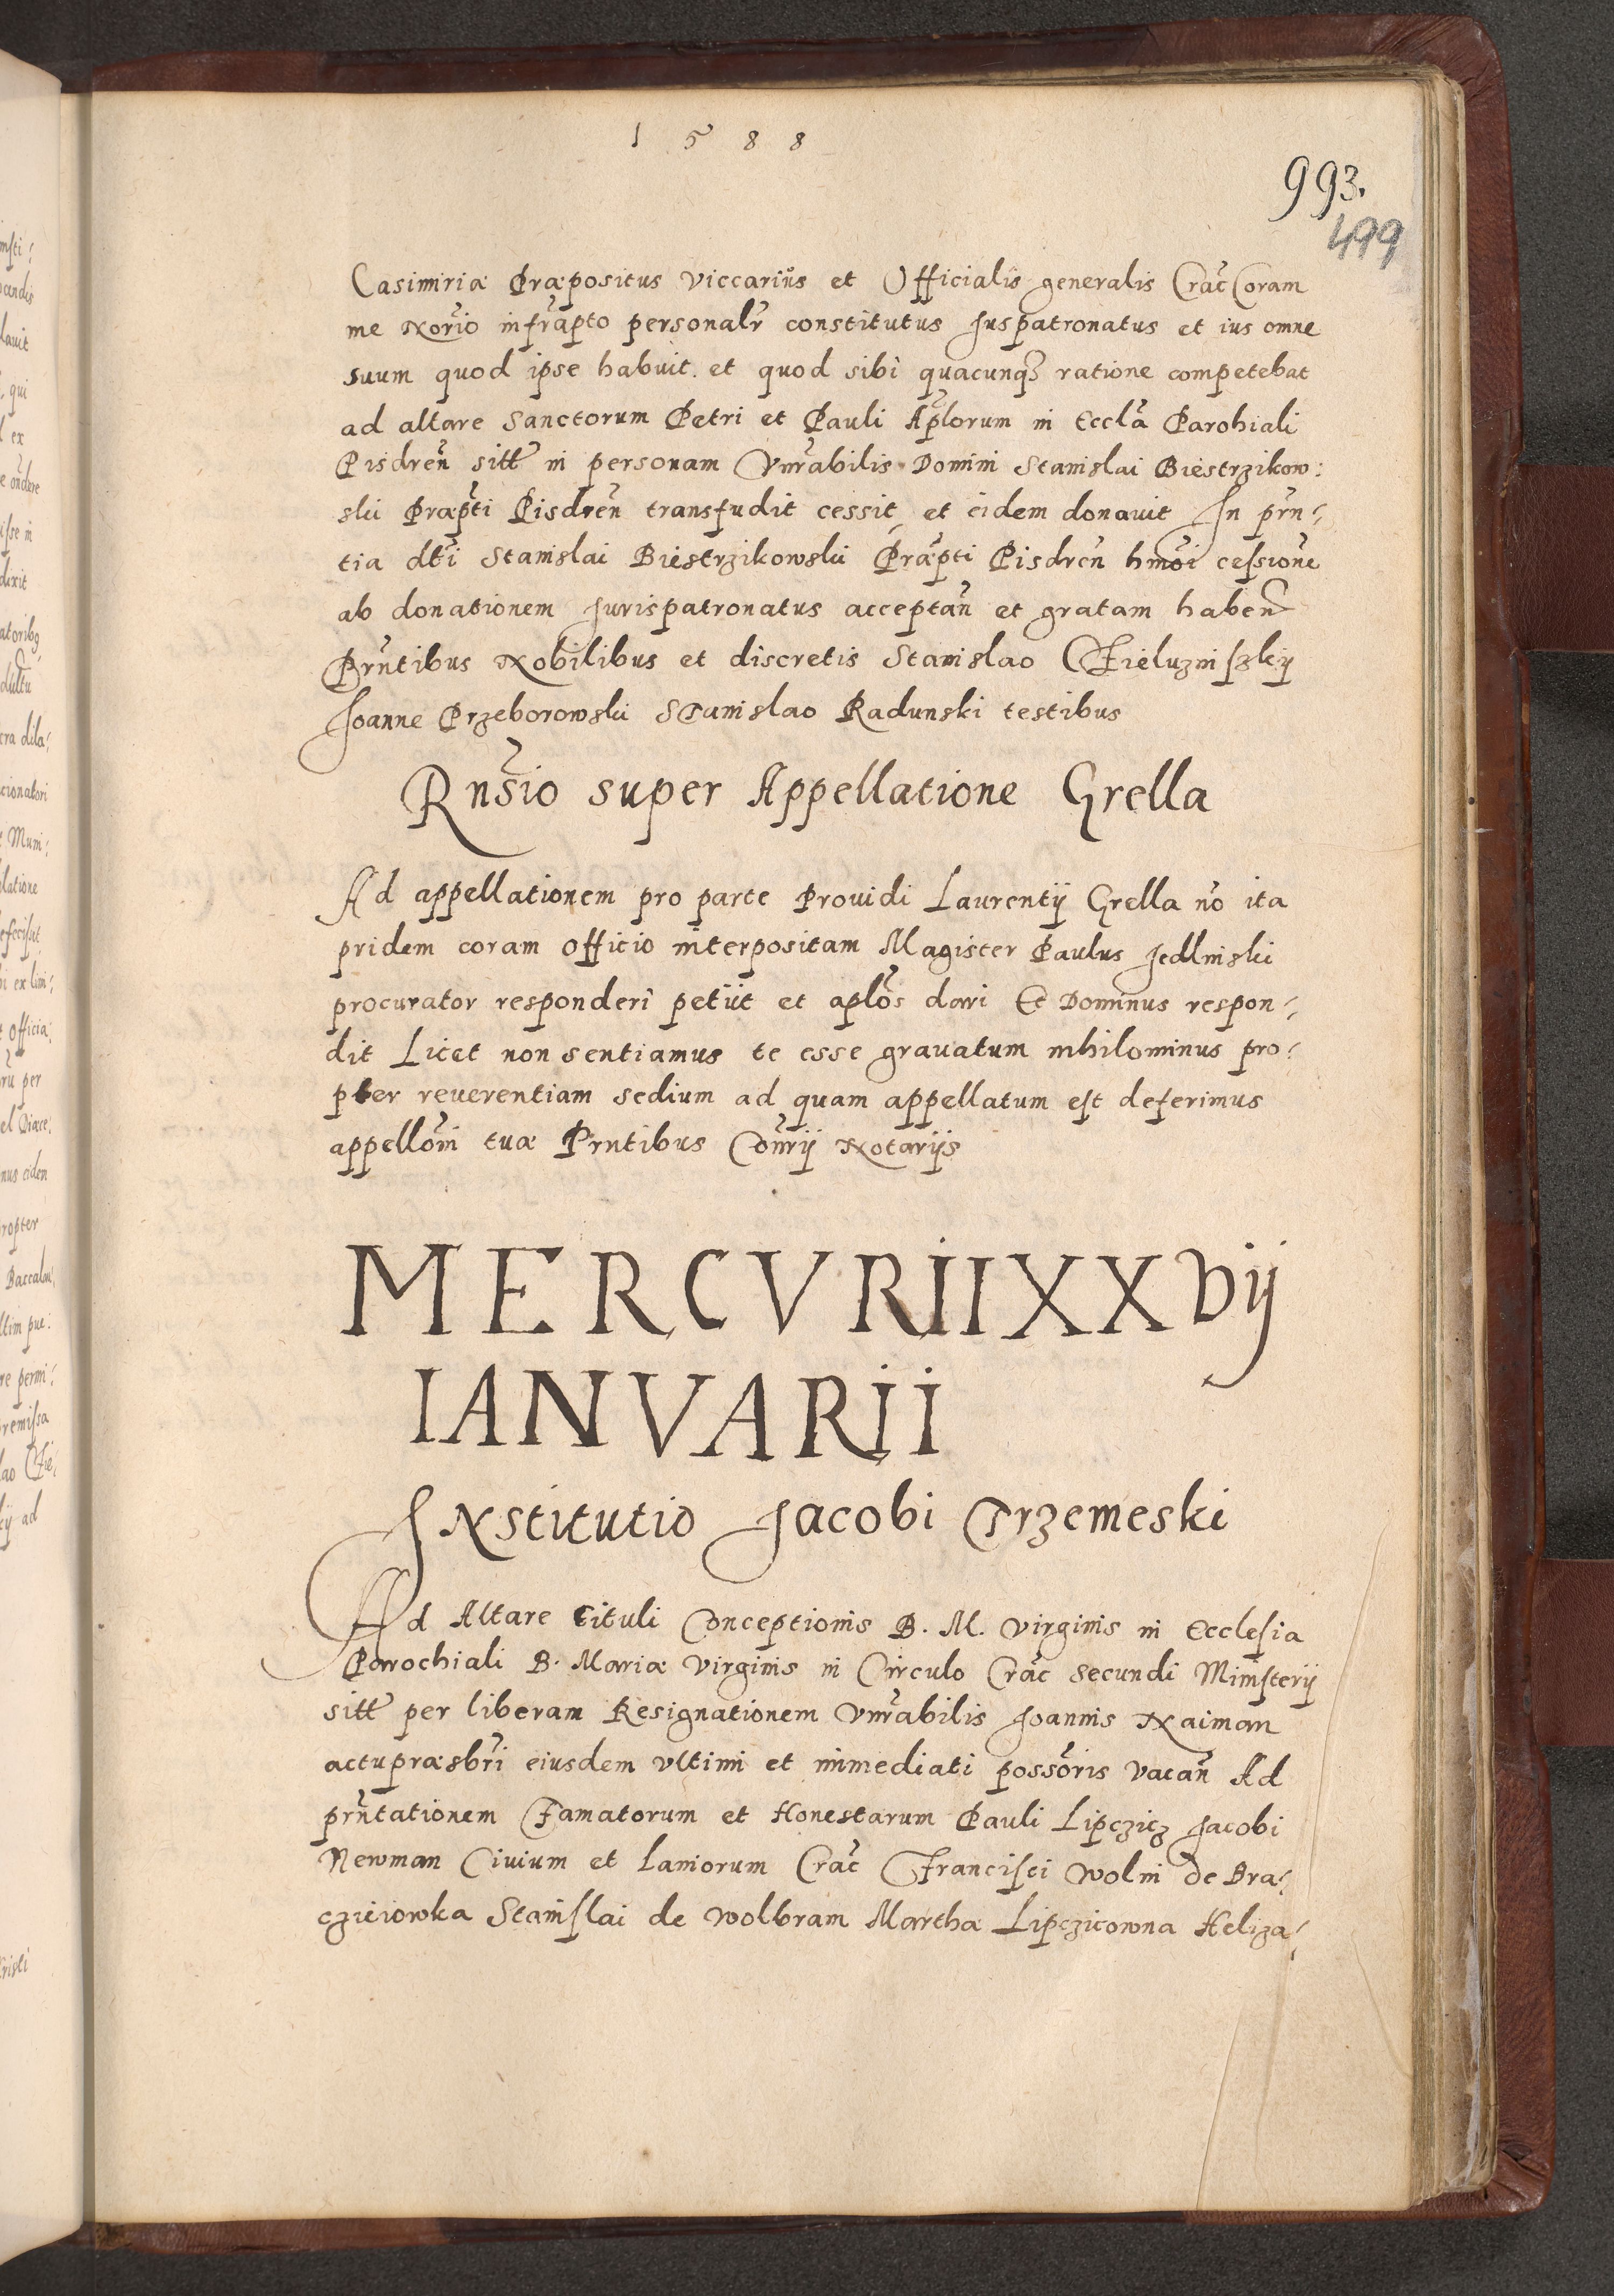 1 5 8 8
993.
499
Casimiriæ Præpositus Viccarius et Officialis generalis Crac̃ Coram
me Norĩo infrãpto personalr̃ constitutus Juspatronatus et ius omne
suum quod ipse habuit. et quod sibi quacunqꝫ ratione competebat
ad altare Sanctorum Petri et Pauli Ap̃lorum in Ecclã Parohiali
Pisdreñ sitt̃ in personam Vnr̃abilis Domini Stanislai Biestrzikow:
ski Præpt̃i Pisdreñ transfudit cessit, et eidem donauit In prñ:
tia dt̃i Stanislai Biestrzikowski Præpt̃i Pisdreñ hmõi cessione
ab donationem Jurispatronatus acceptañ et gratam habeñ
Prñtibus Nobilibus et discretis Stanislao Fieluzinszkij
Joanne Przeborowski Stanislao Radunski testibus
Rns̃io super Appellatione Grella
Ad appellationem pro parte Prouidi Laurentij Grella nõ ita
pridem coram Officio interpositam Magister Paulus Jedlinski
procurator responderi petiit et aplõs dari Et Dominus respon:
dit Licet non sentiamus te esse grauatum nihilominus pro:
pter reuerentiam sedium ad quam appellatum est deferimus
appellõni tuæ Prntibus Coñrij Notarijs
MERCVRII XXVij
IANVARII
INstitutio Jacobi Trzemeski
Ad Altare tituli Conceptionis B. M. Virginis in Ecclesia
Parochiali B. Mariæ Virginis in Circulo Crac̃ Secundi Ministerij
sitt̃ per liberam Resignationem Vnr̃abilis Joannis Naiman
actupræsbrĩ eiusdem Vltimi et immediati possõris Vacañ Ad
prñtationem Famatorum et Honestarum Pauli Lipczicz Jacobi
Newman Ciuium et Laniorum Crac̃ Francisci Wolni de Bra:
cziciowka Stanislai de Wolbram Martha Lipczicowna Heliza: